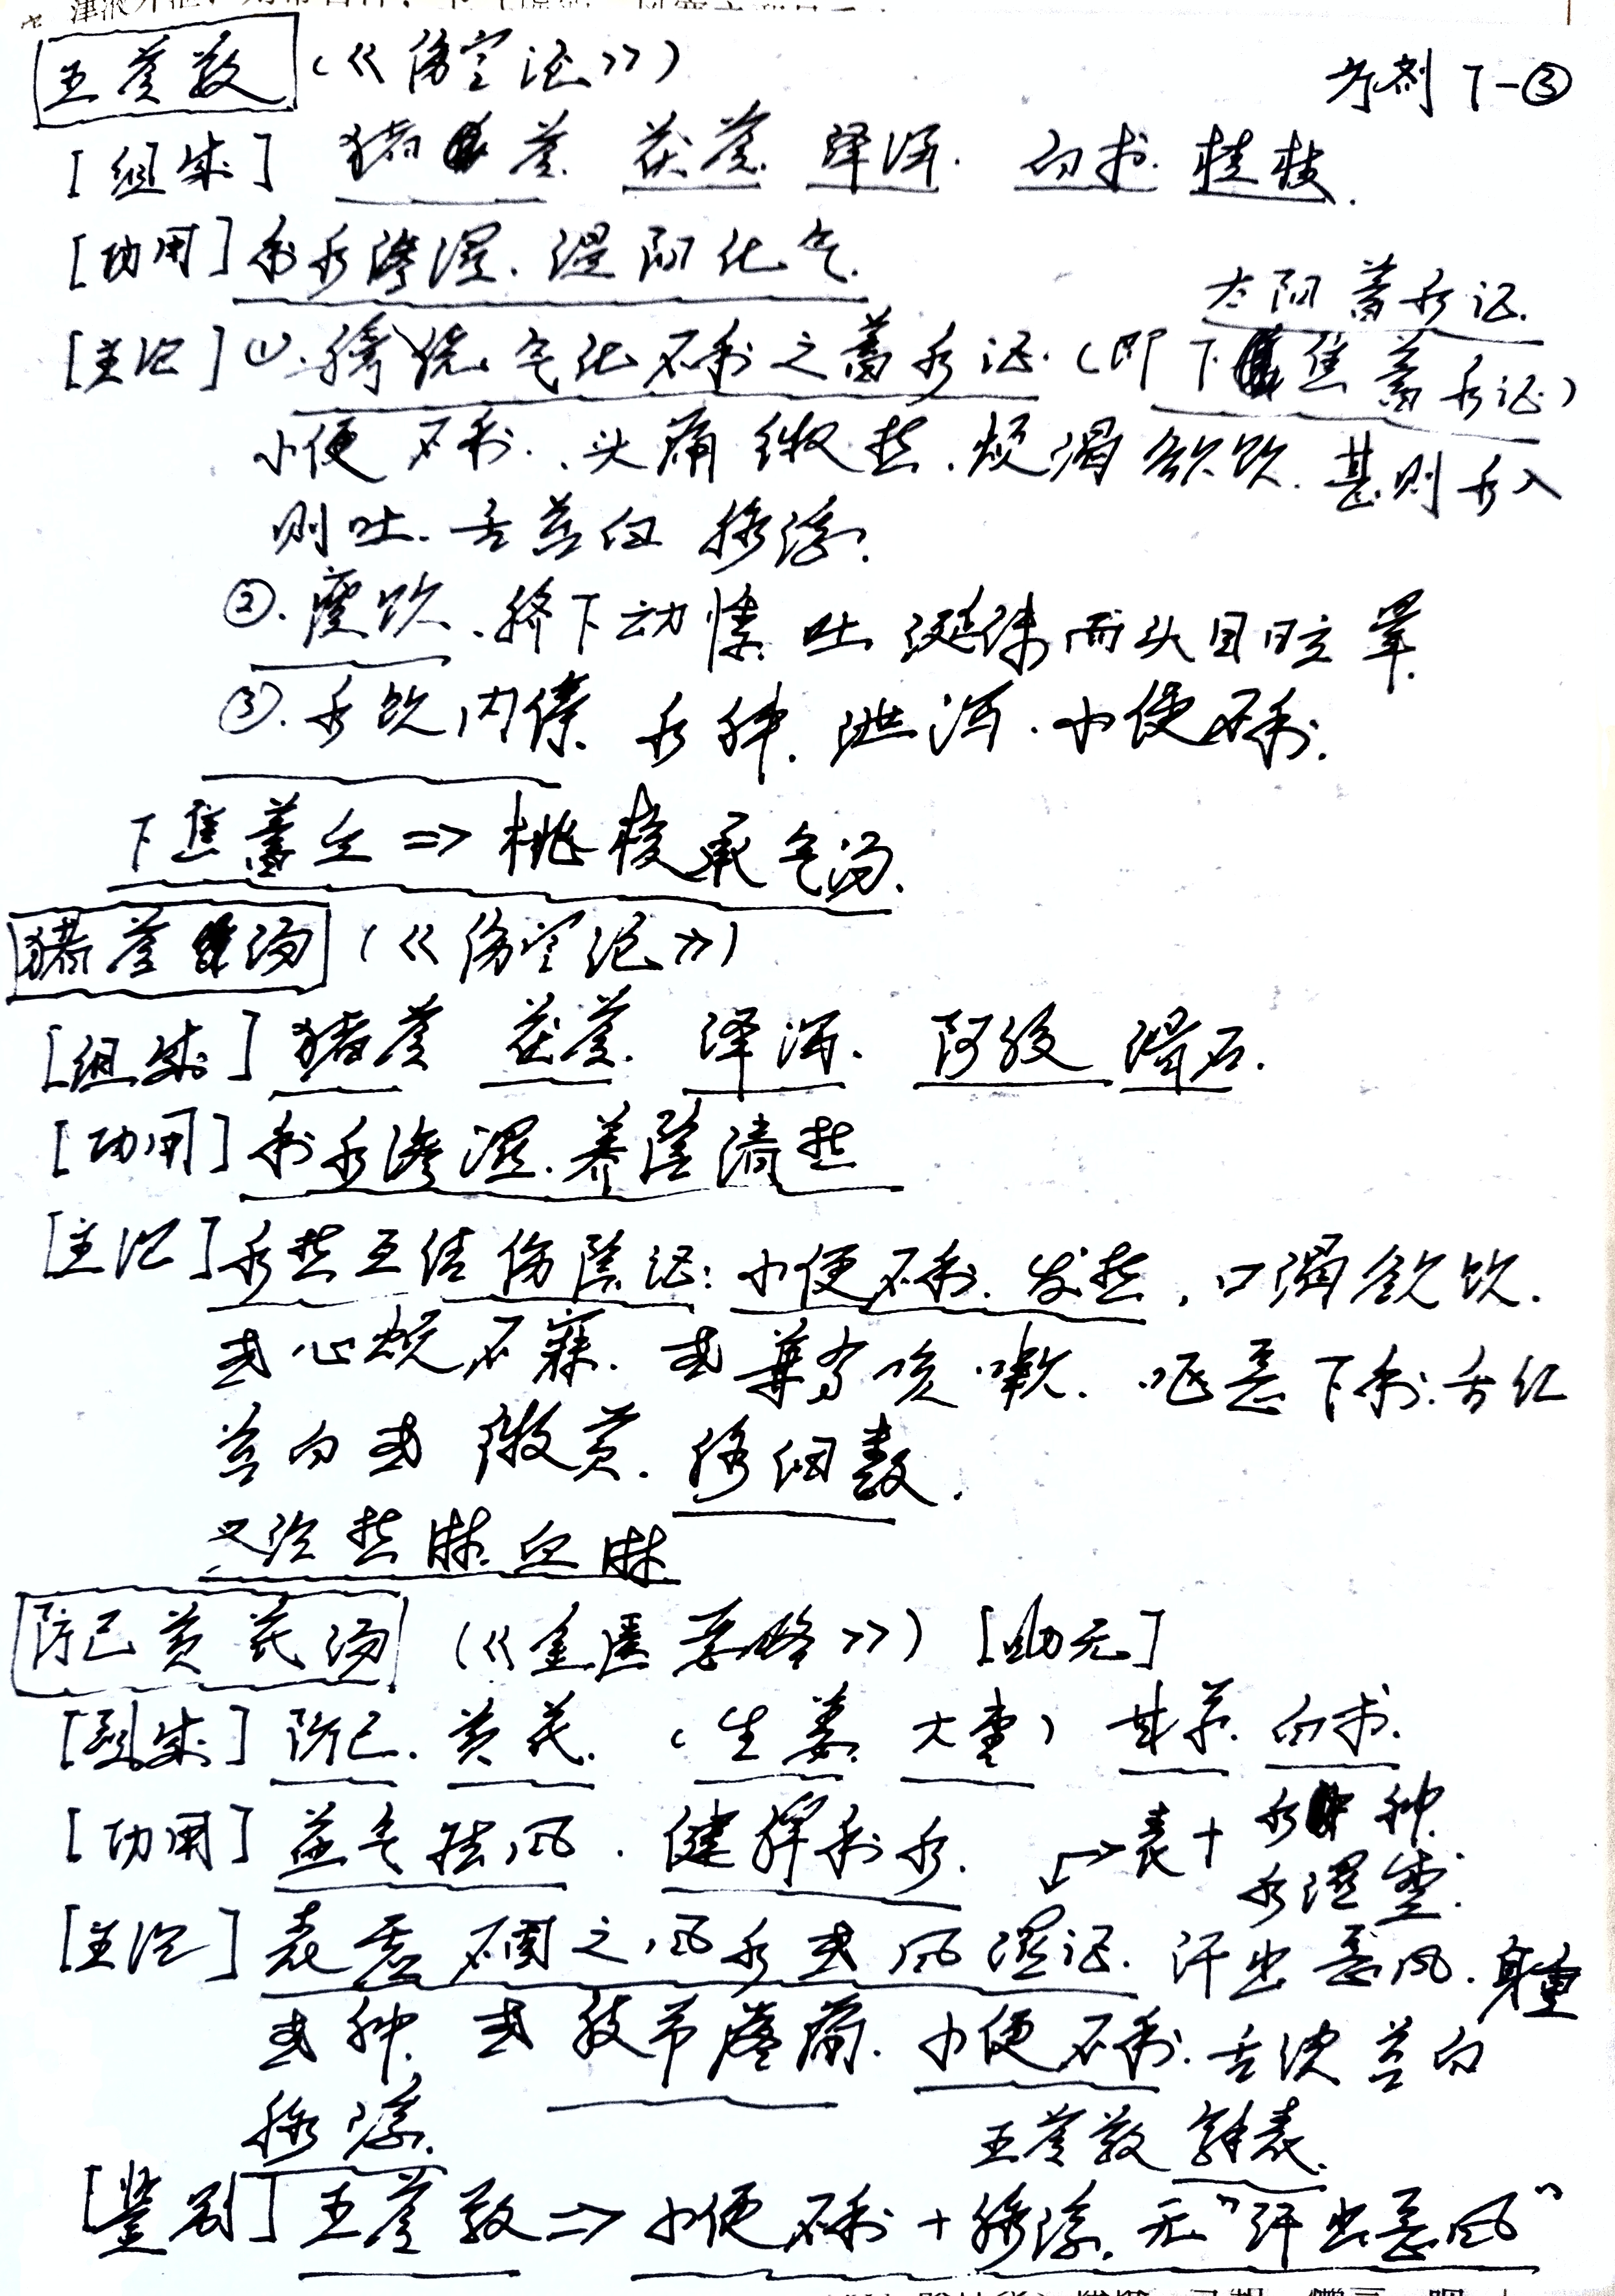 五苓散（《伤寒论》）
方剂 T-③
[组成] 猪苓. 茯苓. 泽泻. 白术. 桂枝.
[功用] 利水渗湿. 温阳化气.
太阳蓄水证.
[主治] ①. 膀胱气化不利之蓄水证.（即下焦蓄水证）
小便不利.、头痛微热.烦渴欲饮. 甚则水入
则吐. 舌苔白 脉浮.
②. 痰饮、脐下动悸. 吐涎沫而头目眩晕.
③. 水饮内停. 水肿. 泄泻. 小便不利.
下焦蓄血 => 桃核承气汤.
猪苓汤（《伤寒论》）
[组成] 猪苓 茯苓. 泽泻. 阿胶 滑石.
[功用] 利水渗湿. 养阴清热
[主治] 水热互结伤阴证: 小便不利. 发热, 口渴欲饮.
或心烦不寐. 或兼有咳嗽. 呕恶下利.舌红
苔白或微黄. 脉细数.
又治热淋.血淋
防己黄芪汤（《金匮要略》）
[组成] 防己. 黄芪.（生姜 大枣）甘草. 白术.
[功用] 益气祛风. 健脾利水.
表+水肿.
水湿重.
[主治] 表虚不固之风水或风湿证. 汗出恶风. 身重
或肿. 或肢节疼痛. 小便不利. 舌淡苔白
脉浮.
五苓散 解表.
[鉴别] 五苓散 => 小便不利+脉浮. 无"汗出恶风"